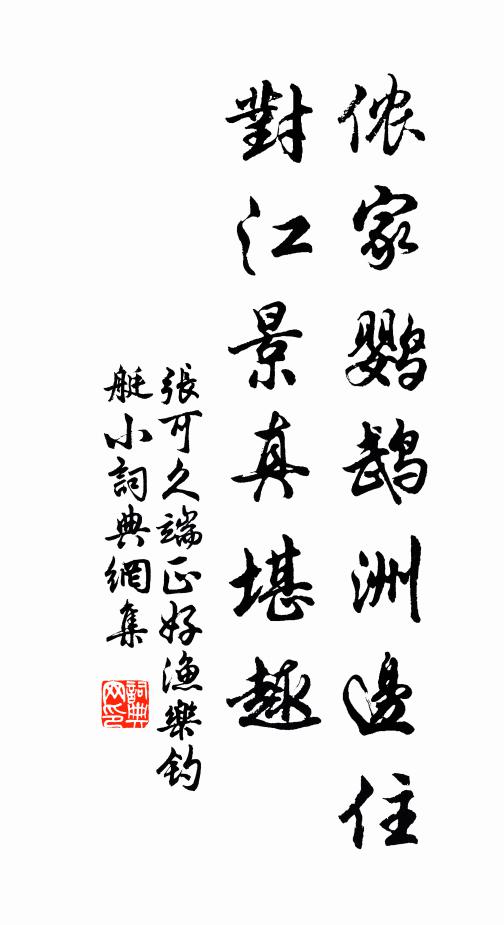 侬家鹦鹉洲邊住
對江景真堪趣
張可久端正好漁樂钓
艇小詞典網集
詞典
网印